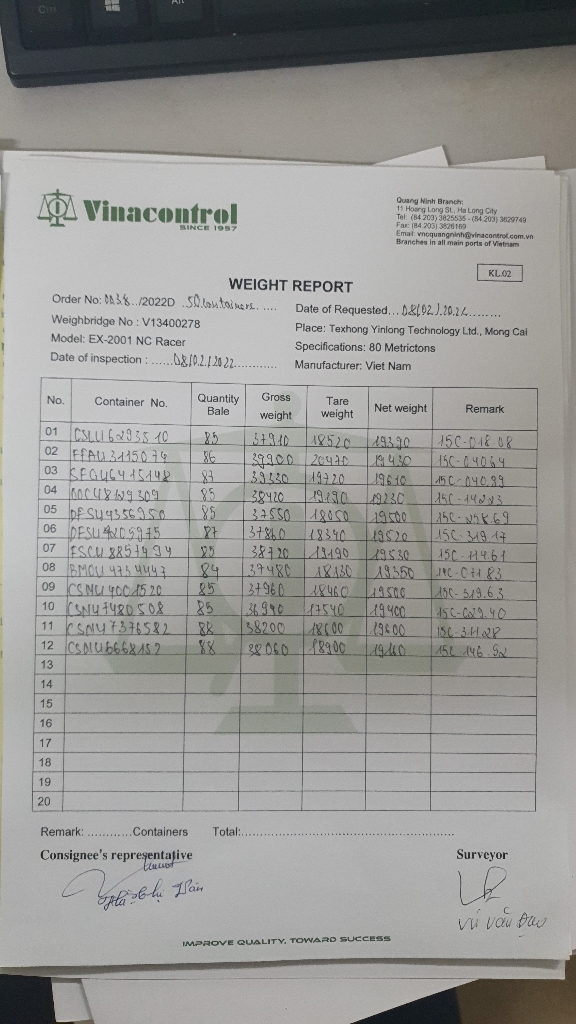 Vinacontrol
SINCE 1957
Quang Ninh Branch:
11 Hoang Long St., Ha Long City
Tel: (84 203) 3825535 - (84.203) 3629749
Fax: (84.203) 3826169
Email: vncquangninh@vinacontrol.com.vn
Branches in all main ports of Vietnam
KL.02
WEIGHT REPORT
Order No: 0038../2022D .50 Containers. ....
Date of Requested...08/02/2022.........
Weighbridge No : V13400278
Place: Texhong Yinlong Technology Ltd., Mong Cai
Model: EX-2001 NC Racer
Specifications: 80 Metrictons
Date of inspection : ......08/02/2022............
Manufacturer: Viet Nam
No. Container No. Quantity Bale Gross weight Tare weight Net weight Remark
01 CSLU6293510 85 37910 18520 19390 15C-018.08
02 FFAU3115074 86 39900 20470 19430 15C-04064
03 SEGU6415148 87 39330 19720 19610 15C-040.99
04 85 38420 19190 19230
05 85 37550 18050 19500
06 87 37860 18340 19520 15C-319.17
07 85 38720 19190 19530 15C-114.61
08 BMOU4734447 84 37480 18130 19350
09 CSNU4001520 85 37960 18460 19500 15C-319.63
10 CSNU7480508 85 36940 17540 19400 15C-029.40
11 CSNU7376582 88 38200 18600 19600
12 88 38060 18900 19160 15C-146.92
13
14
15
16
17
18
19
20
Remark: ............Containers Total:..........................................................
Consignee's representative Surveyor
Vũ Văn Đạo
IMPROVE QUALITY, TOWARD SUCCESS